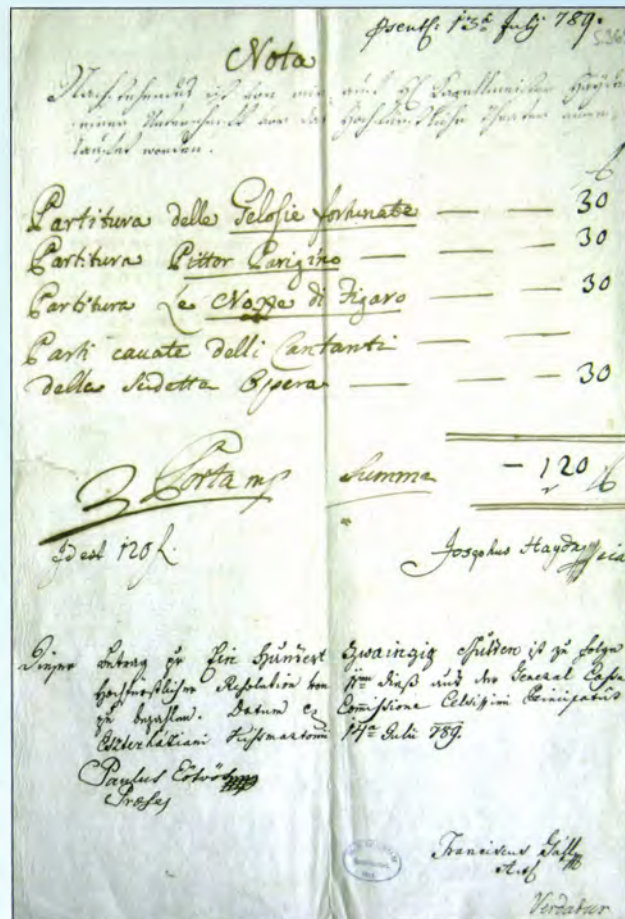 psentf: 13ª July 789.
Nota
Nachstehendes ist von mir auf H Kapellmeister
vor das Hochfürstliche Theater
worden.
f
Partitura delle Gelosie fortunate — — — 30
Partitura Pittor Parigino — — — 30
Partitura Le Nozze di Figaro — — — 30
Parti cavate delli Cantanti — — —
della sudetta Opera — — — 30
Summa - 120 f
Porta mp
Idest 120 f.
Josephus Haydn
Dieser Betrag pr Ein Hundert Zwainzig Gulden ist zu folge
Hochfürstlicher Resolution von 11ten dieß aus der General Cassa
zu bezahlen. Datum ex Commissione Celsissimi Principatus
Eszterháziani Kissmartonii 14ta Julii 789.
Paulus Eötvös
Præses
Franciscus
Verdatur